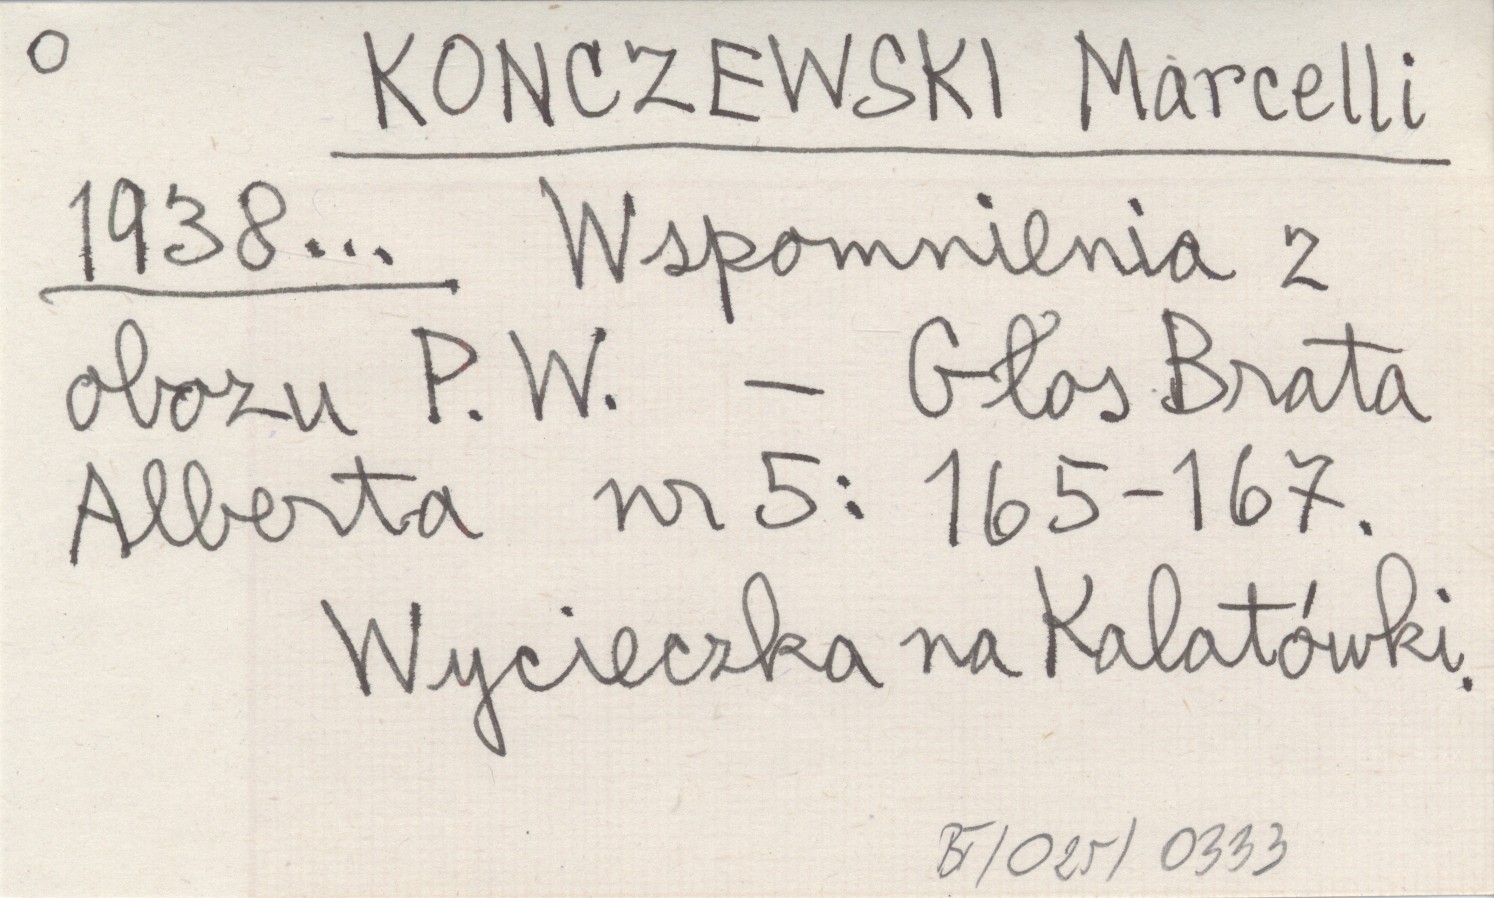 O KONCZEWSKI Marcelli
1938... Wspomnienia z
obozu P. W. – Głos Brata
Alberta nr 5: 165-167.
Wycieczka na Kalatówki.
BT/025/ 0333